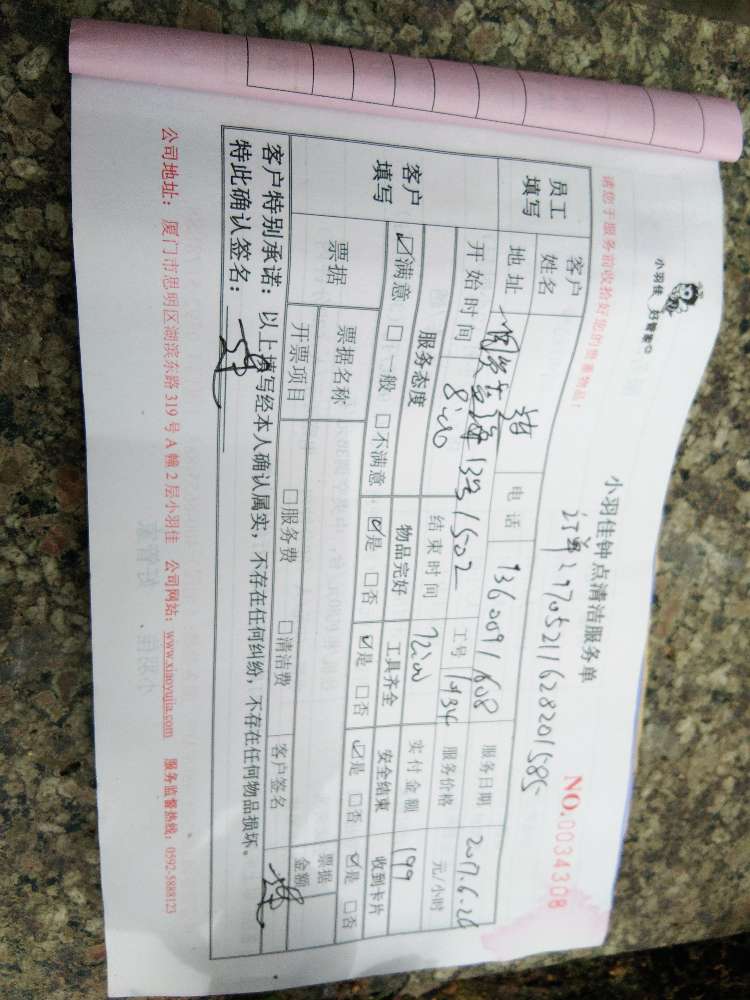 小羽佳 好管家
小羽佳钟点清洁服务单
NO.0034308
请您于服务前收拾好您的贵重物品！
员工填写
客户姓名
电话
服务日期 2017.6.26
地址
1502
工号
服务价格 元/小时
开始时间 8:00 结束时间 12:00 实付金额 199
客户填写
服务态度 物品完好 工具齐全 安全结束 收到卡片
☑满意 □一般 □不满意 ☑是 □否 ☑是 □否 ☑是 □否 ☑是 □否
票据 票据名称 票据金额
开票项目 □服务费 □清洁费 客户签名
客户特别承诺：以上填写经本人确认属实，不存在任何纠纷，不存在任何物品损坏。
特此确认签名：
公司地址：厦门市思明区湖滨东路319号A幢2层小羽佳 公司网站：www.xiaoyujia.com 服务监督热线：0592-5888123